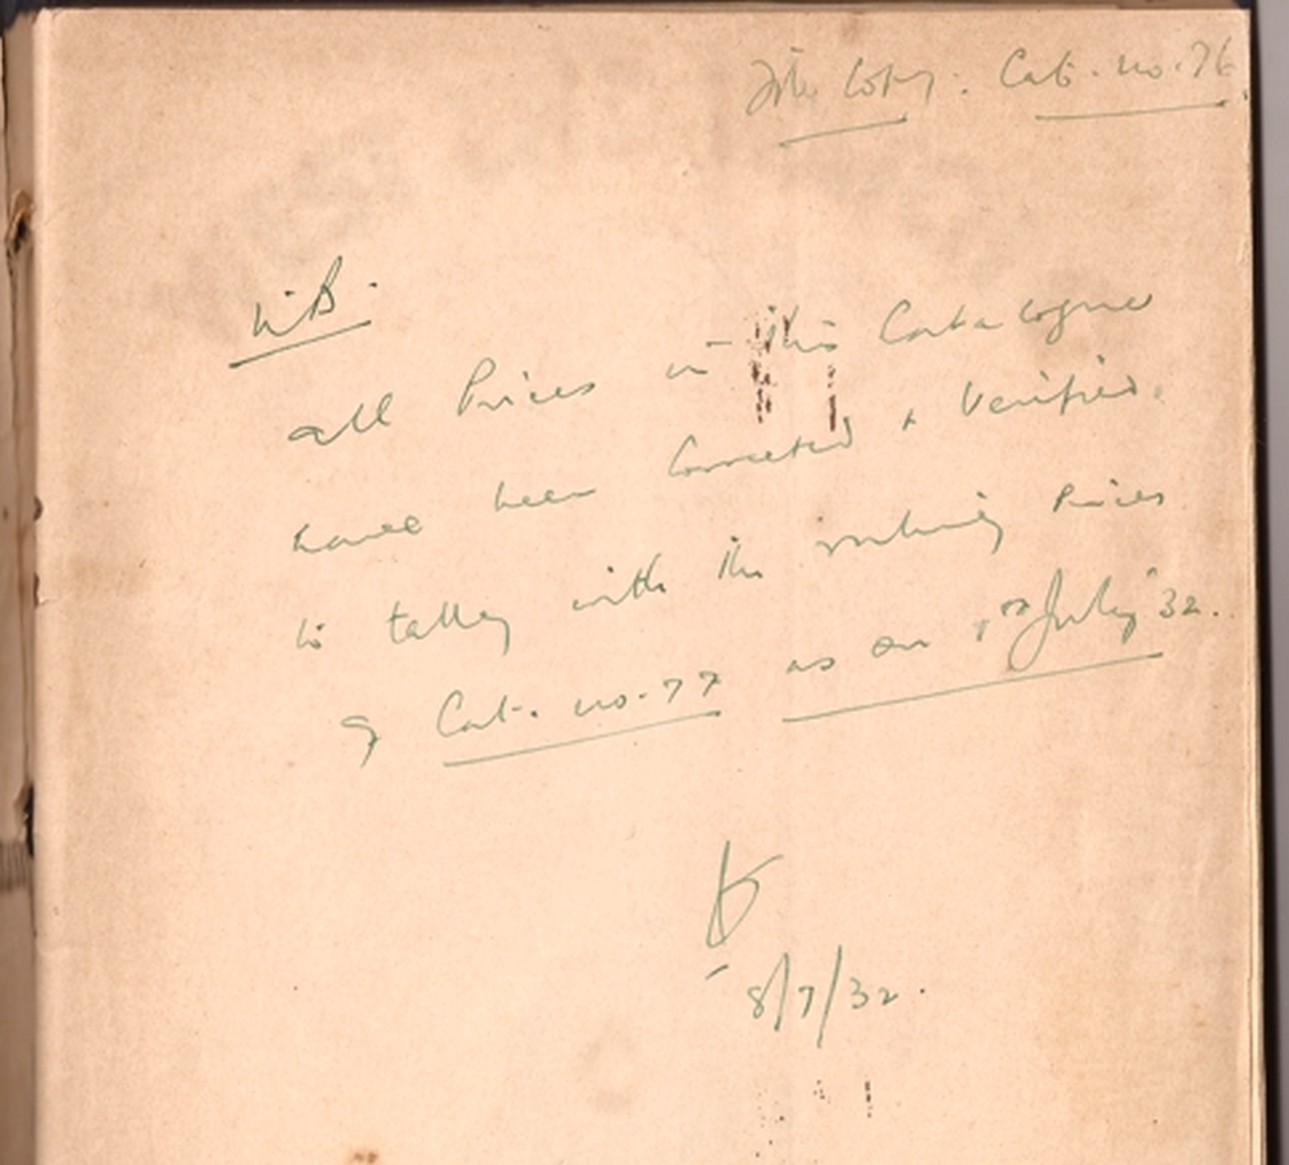 File Copy: Cat. no. 76.
N.B.
All Prices in this Catalogue
have been Corrected & Verified.
to talley with the ruling Prices
of Cat. no. 77 as on 1st July '32.
8/7/32.